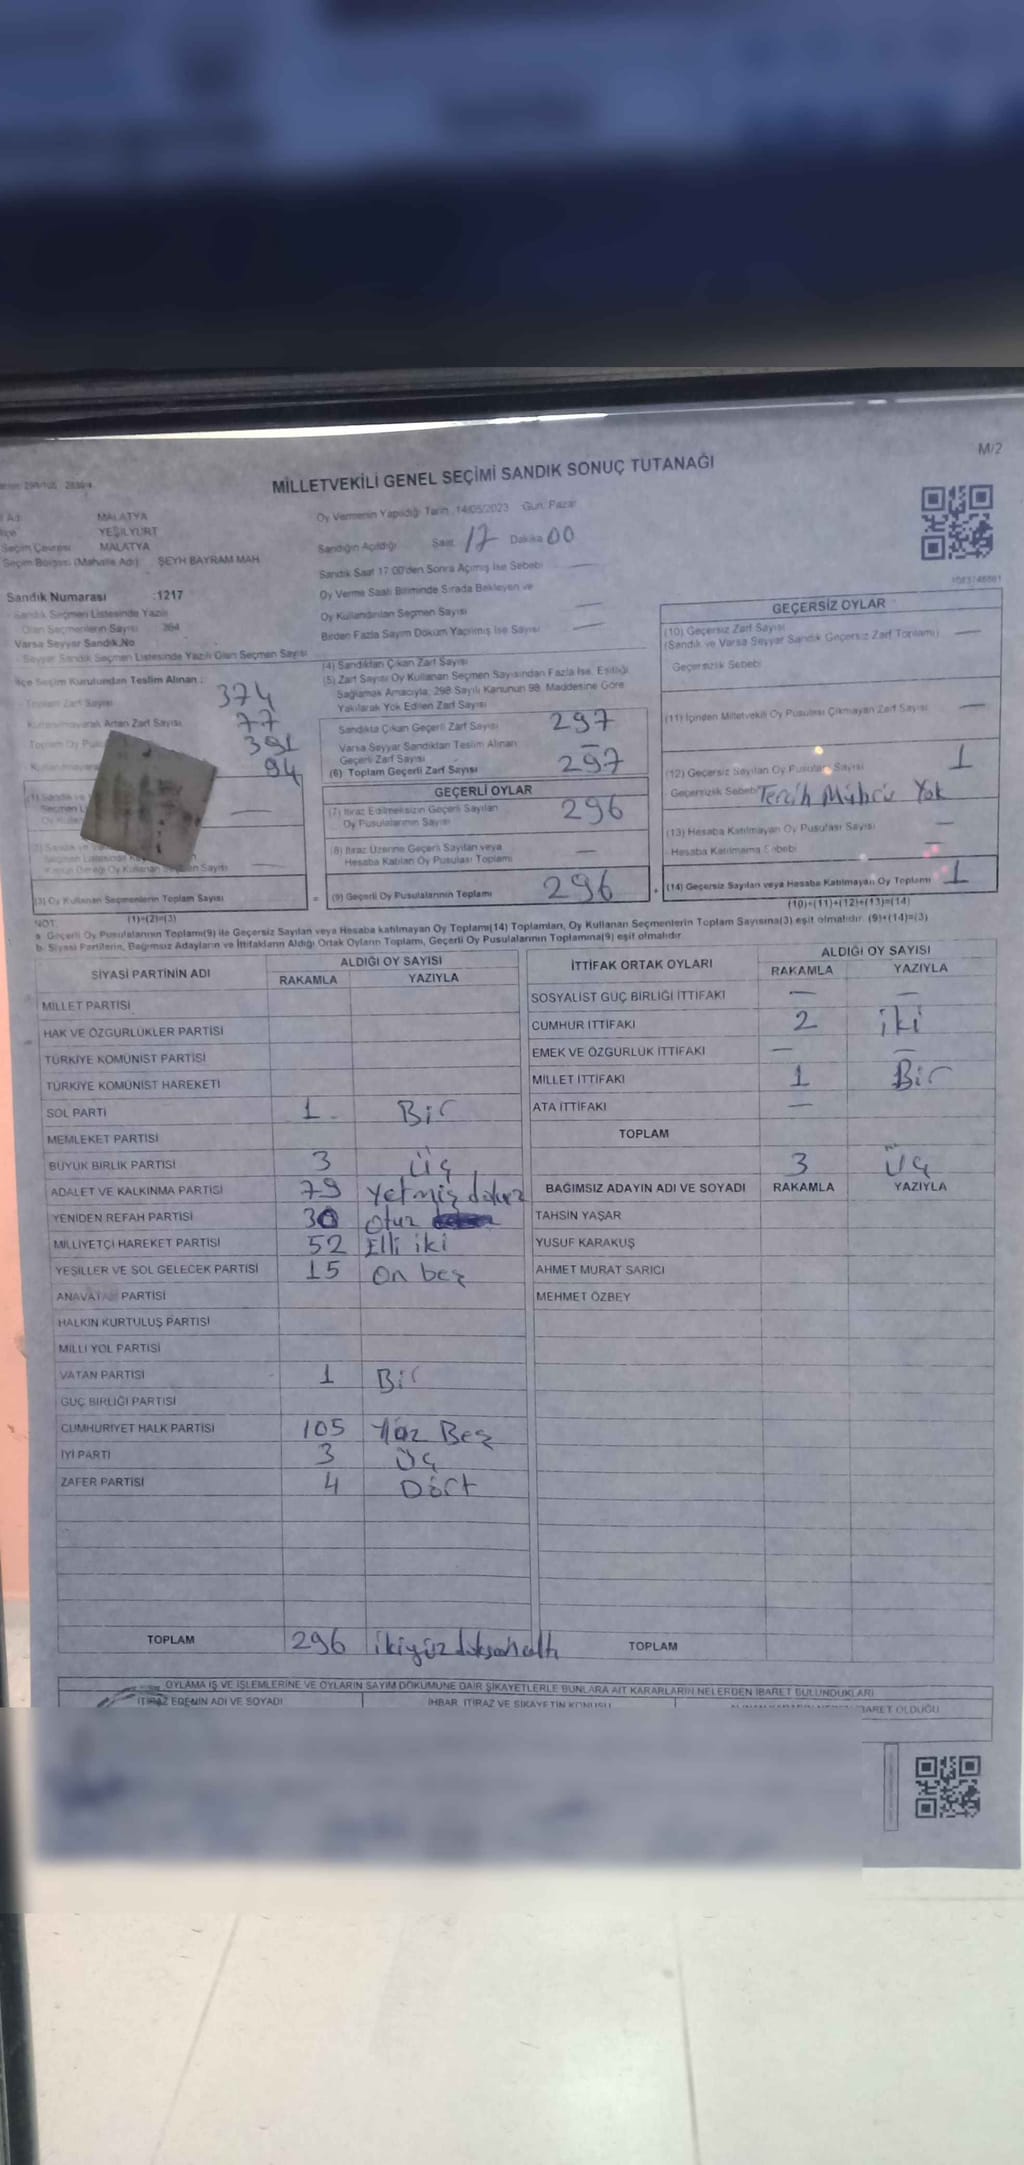 M/2
MİLLETVEKİLİ GENEL SEÇİMİ SANDIK SONUÇ TUTANAĞI
MALATYA
YEŞİLYURT
Seçim Çevresi MALATYA
Seçim Bölgesi (Mahalle Adı) ŞEYH BAYRAM MAH
Sandık Numarası :1217
Sandık Seçmen Listesinde Yazılı
Olan Seçmenlerin Sayısı
Varsa Seyyar Sandık No
Seyyar Sandık Seçmen Listesinde Yazılı Olan Seçmen Sayısı
İlçe Seçim Kurulundan Teslim Alınan :
Toplam Zarf Sayısı 374
Kullanılmayarak Artan Zarf Sayısı 77
Toplam Oy 391
94
(3) Oy Kullanan Seçmenlerin Toplam Sayısı
(1)+(2)=(3)
Oy Vermenin Yapıldığı Tarih :14/05/2023 Gün: Pazar
Sandığın Açıldığı Saat 17 Dakika 00
Sandık Saat 17:00'den Sonra Açılmış İse Sebebi —
Oy Verme Saati Bitiminde Sırada Bekleyen ve
Oy Kullandırılan Seçmen Sayısı —
Birden Fazla Sayım Döküm Yapılmış İse Sayısı —
(4) Sandıktan Çıkan Zarf Sayısı
(5) Zarf Sayısı Oy Kullanan Seçmen Sayısından Fazla İse, Eşitliği
Sağlamak Amacıyla; 298 Sayılı Kanunun 98. Maddesine Göre
Yakılarak Yok Edilen Zarf Sayısı
Sandıkta Çıkan Geçerli Zarf Sayısı 297
Varsa Seyyar Sandıktan Teslim Alınan
Geçerli Zarf Sayısı —
(6) Toplam Geçerli Zarf Sayısı 297
GEÇERLİ OYLAR
(7) İtiraz Edilmeksizin Geçerli Sayılan
Oy Pusulalarının Sayısı 296
(8) İtiraz Üzerine Geçerli Sayılan veya
Hesaba Katılan Oy Pusulası Toplamı —
= (9) Geçerli Oy Pusulalarının Toplamı 296
GEÇERSİZ OYLAR
(10) Geçersiz Zarf Sayısı
(Sandık ve Varsa Seyyar Sandık Geçersiz Zarf Toplamı) —
Geçersizlik Sebebi
(11) İçinden Milletvekili Oy Pusulası Çıkmayan Zarf Sayısı —
(12) Geçersiz Sayılan Oy Pusulası Sayısı 1
Geçersizlik Sebebi Tercih Mührü Yok
(13) Hesaba Katılmayan Oy Pusulası Sayısı —
Hesaba Katılmama Sebebi —
+ (14) Geçersiz Sayılan veya Hesaba Katılmayan Oy Toplamı 1
(10)+(11)+(12)+(13)=(14)
NOT:
a. Geçerli Oy Pusulalarının Toplamı(9) ile Geçersiz Sayılan veya Hesaba katılmayan Oy Toplamı(14) Toplamları, Oy Kullanan Seçmenlerin Toplam Sayısına(3) eşit olmalıdır. (9)+(14)=(3)
b. Siyasi Partilerin, Bağımsız Adayların ve İttifakların Aldığı Ortak Oyların Toplamı, Geçerli Oy Pusulalarının Toplamına(9) eşit olmalıdır.
SİYASİ PARTİNİN ADI ALDIĞI OY SAYISI
RAKAMLA YAZIYLA
MİLLET PARTİSİ
HAK VE ÖZGÜRLÜKLER PARTİSİ
TÜRKİYE KOMÜNİST PARTİSİ
TÜRKİYE KOMÜNİST HAREKETİ
SOL PARTİ 1 Bir
MEMLEKET PARTİSİ
BÜYÜK BİRLİK PARTİSİ 3 Üç
ADALET VE KALKINMA PARTİSİ 79 Yetmiş dokuz
YENİDEN REFAH PARTİSİ 30 Otuz
MİLLİYETÇİ HAREKET PARTİSİ 52 Elli iki
YEŞİLLER VE SOL GELECEK PARTİSİ 15 On beş
ANAVATAN PARTİSİ
HALKIN KURTULUŞ PARTİSİ
MİLLİ YOL PARTİSİ
VATAN PARTİSİ 1 Bir
GÜÇ BİRLİĞİ PARTİSİ
CUMHURİYET HALK PARTİSİ 105 Yüz Beş
İYİ PARTİ 3 Üç
ZAFER PARTİSİ 4 Dört
TOPLAM 296 ikiyüz doksan altı
İTTİFAK ORTAK OYLARI ALDIĞI OY SAYISI
RAKAMLA YAZIYLA
SOSYALİST GÜÇ BİRLİĞİ İTTİFAKI — —
CUMHUR İTTİFAKI 2 iki
EMEK VE ÖZGÜRLÜK İTTİFAKI — —
MİLLET İTTİFAKI 1 Bir
ATA İTTİFAKI —
TOPLAM
3 Üç
BAĞIMSIZ ADAYIN ADI VE SOYADI RAKAMLA YAZIYLA
TAHSİN YAŞAR
YUSUF KARAKUŞ
AHMET MURAT SARICI
MEHMET ÖZBEY
TOPLAM
OYLAMA İŞ VE İŞLEMLERİNE VE OYLARIN SAYIM DÖKÜMÜNE DAİR ŞİKAYETLERLE BUNLARA AİT KARARLARIN NELERDEN İBARET BULUNDUKLARI
İTİRAZ EDENİN ADI VE SOYADI İHBAR, İTİRAZ VE ŞİKAYETİN KONUSU İBARET OLDUĞU